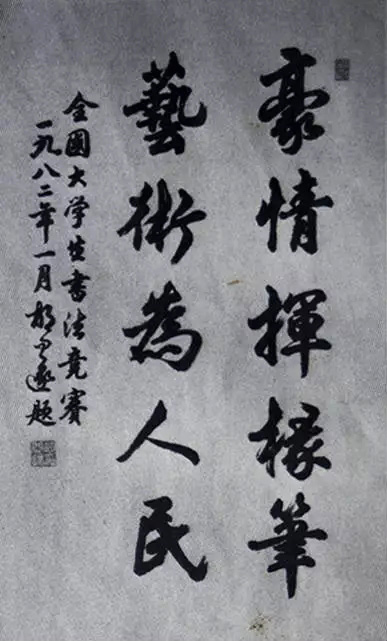 豪情揮椽筆
藝術為人民
全國大学生書法竞賽
一九八二年一月胡问遂题